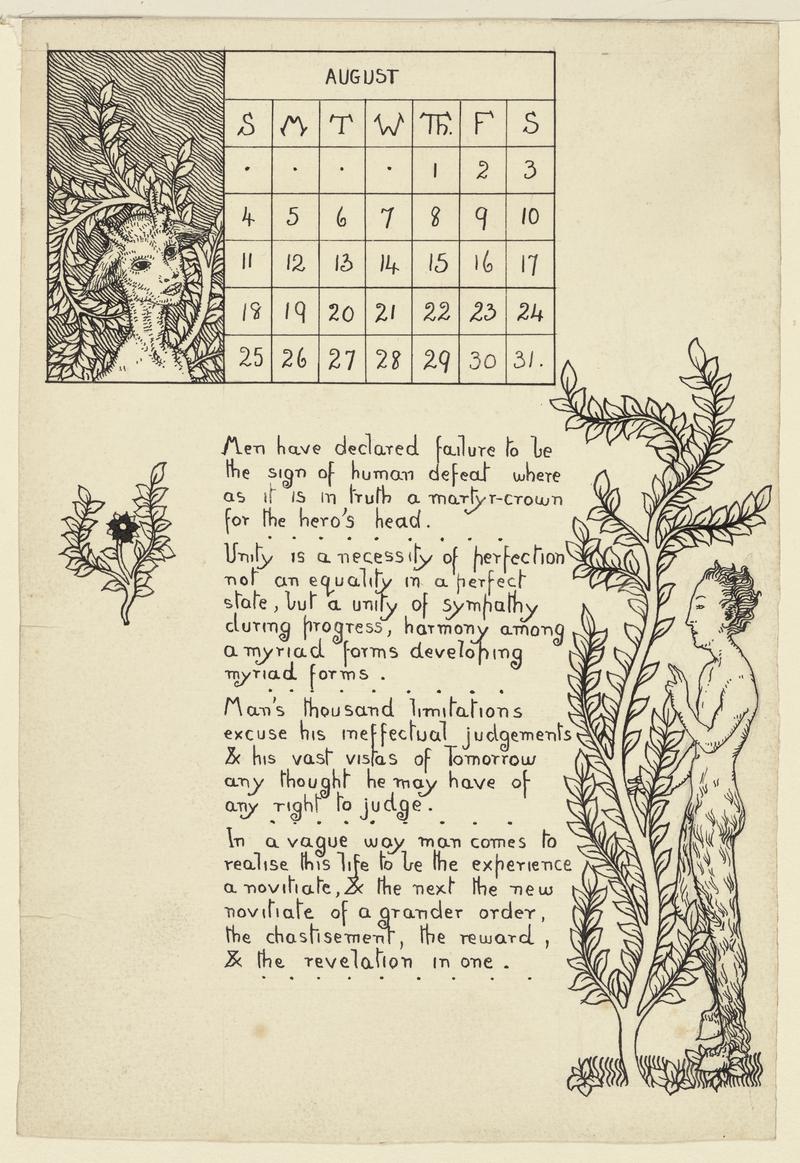 AUGUST
S M T W Th. F S
. . . . 1 2 3
4 5 6 7 8 9 10
11 12 13 14 15 16 17
18 19 20 21 22 23 24
25 26 27 28 29 30 31.
Men have declared failure to be
the sign of human defeat where
as it is in truth a martyr-crown
for the hero's head.
Unity is a necessity of perfection
not an equality in a perfect
state, but a unity of sympathy
during progress, harmony among
a myriad forms developing
myriad forms.
Man's thousand limitations
excuse his ineffectual judgements
& his vast vistas of Tomorrow
any thought he may have of
any right to judge.
In a vague way man comes to
realise this life to be the experience
a novitiate, & the next the new
novitiate of a grander order,
the chastisement, the reward,
& the revelation in one.